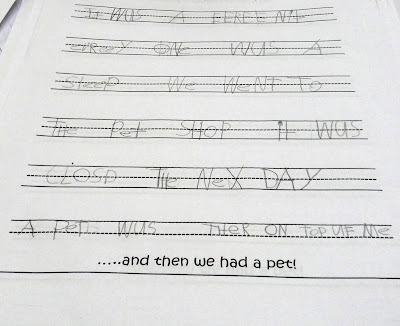 IT WUS A FERE NIT
EREY ONE WUS A
Sleep We WeNT TO
THe PeT SHOP iT WUS
CLOSD THe NeX DAY
A PeT WUS THER ON TOP UF Me
.....and then we had a pet!